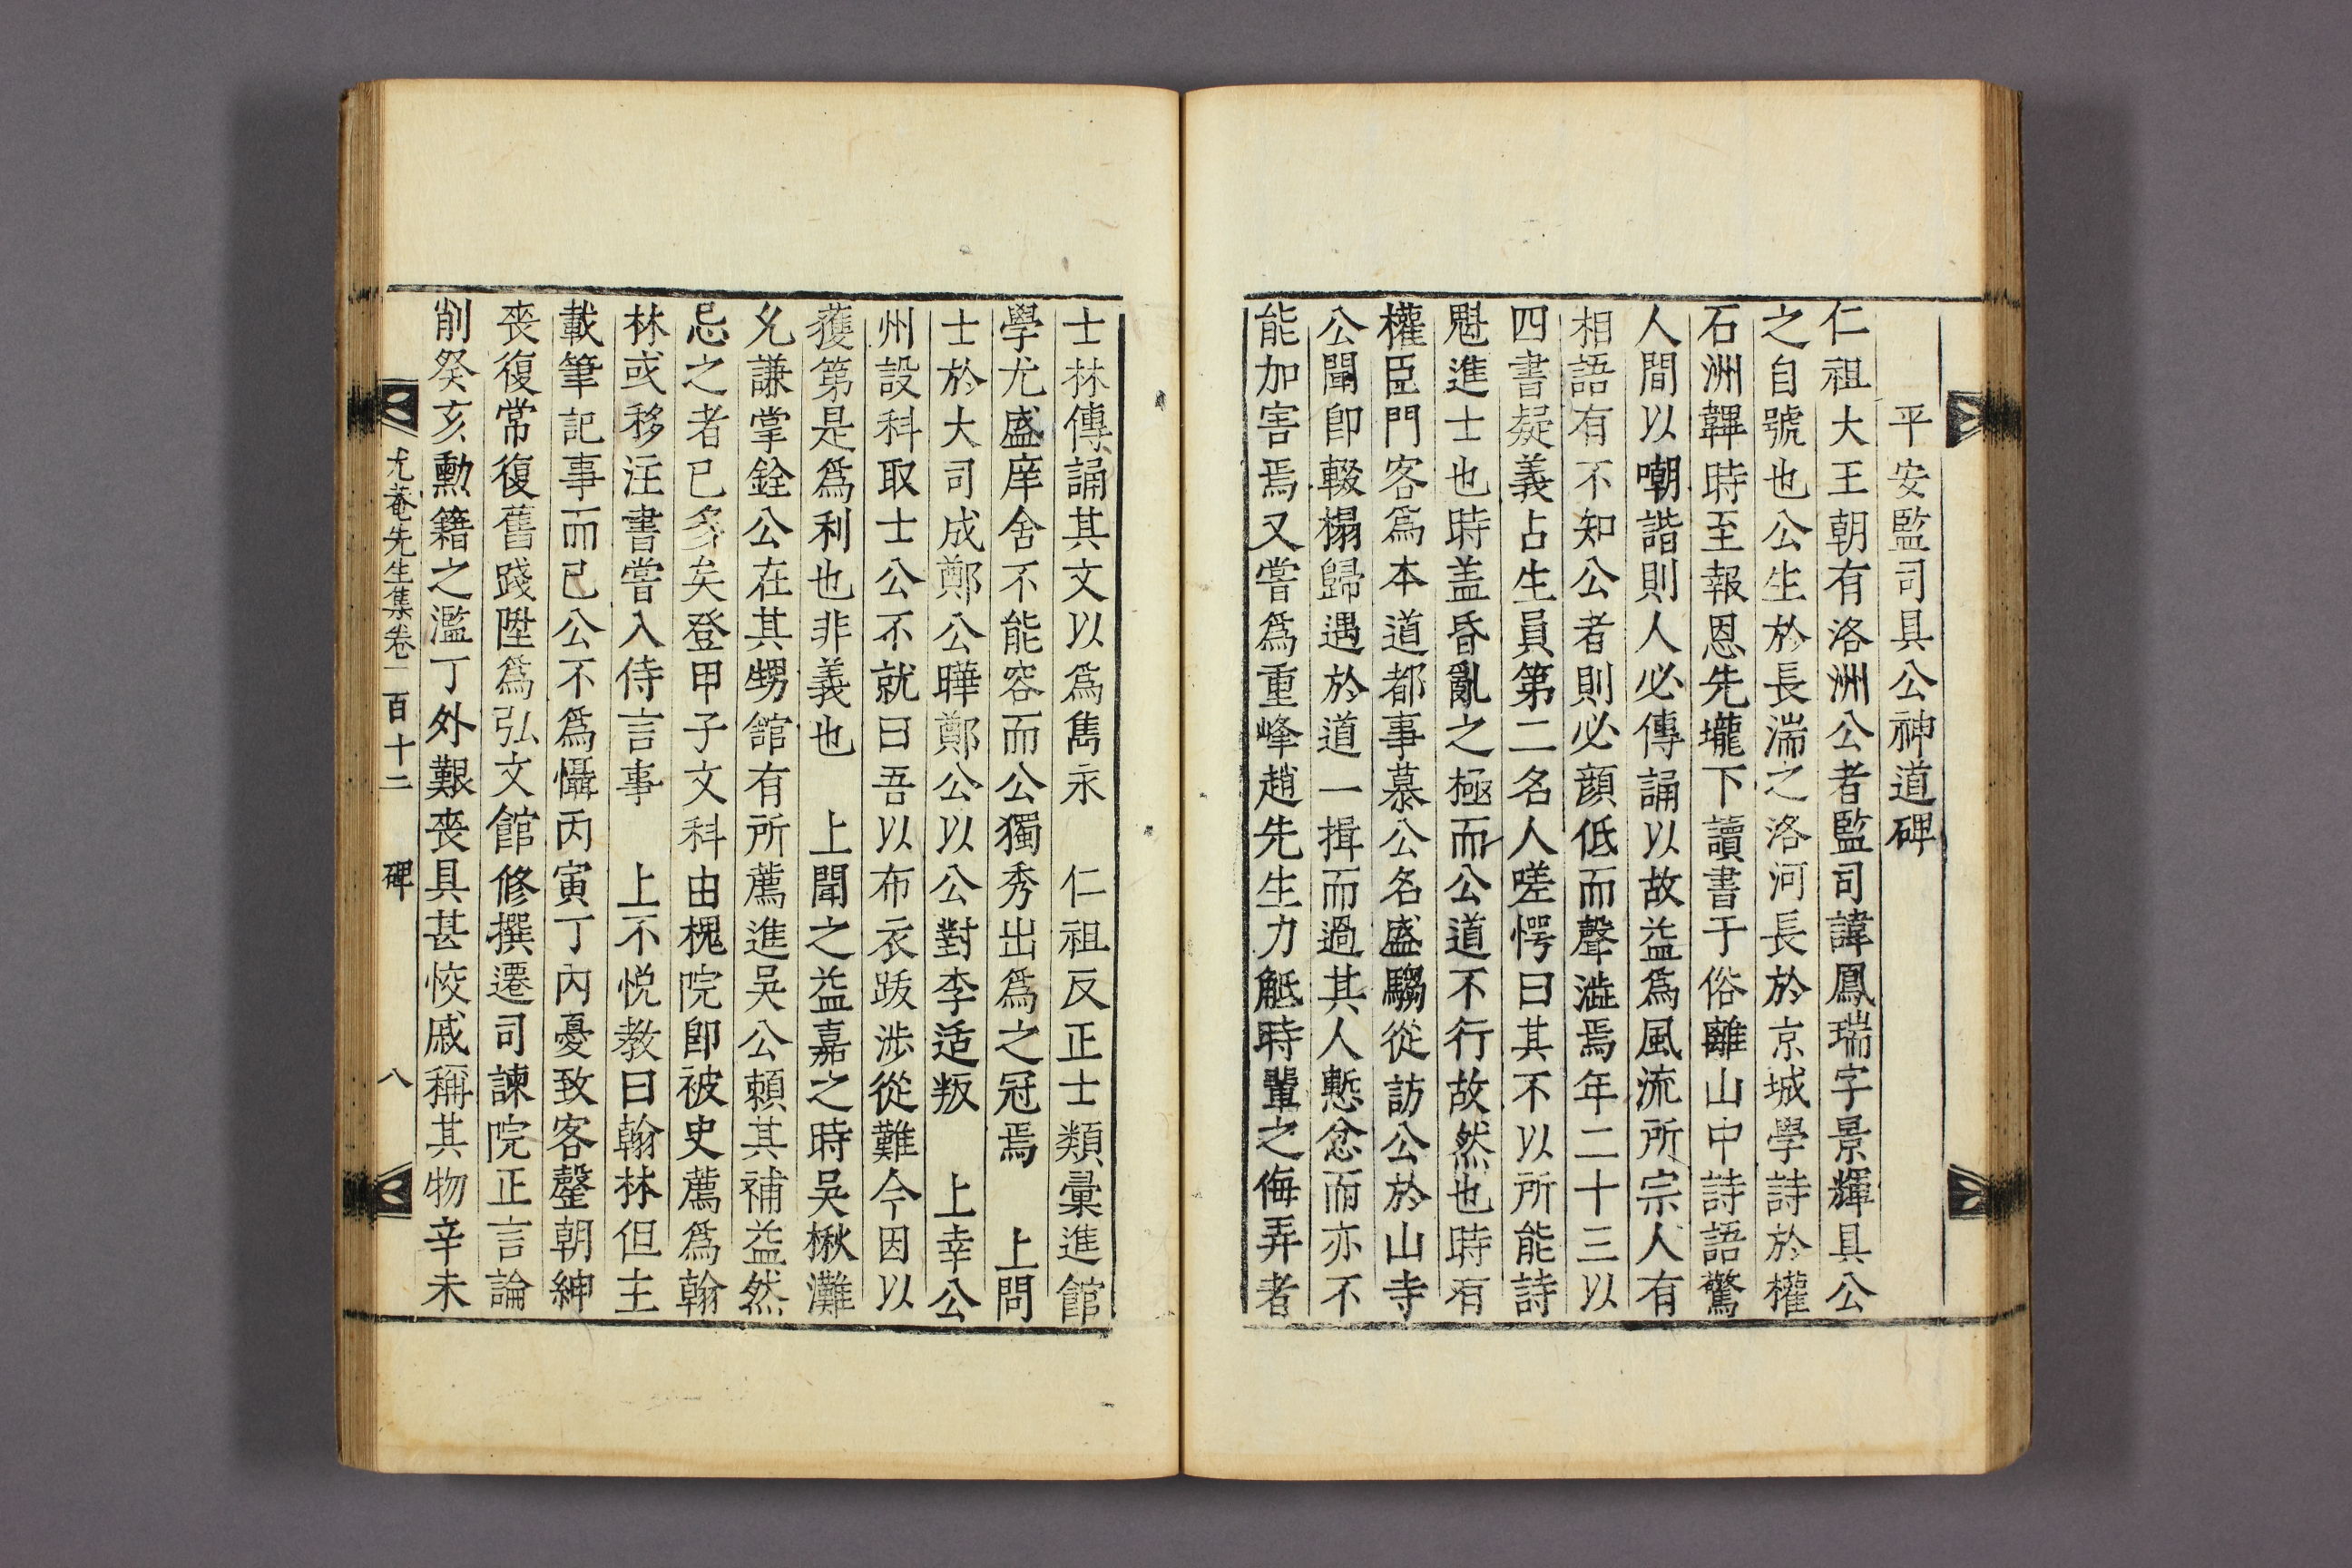 平安監司具公神道碑
仁祖大王朝有洛洲公者監司諱鳳瑞字景輝具公
之自號也公生於長湍之洛河長於京城學詩於權
石洲韠時至報恩先壠下讀書于俗離山中詩語驚
人間以嘲諧則人必傳誦以故益爲風流所宗人有
相語有不知公者則必顔低而聲澁焉年二十三以
四書疑義占生員第二名人嗟愕曰其不以所能詩
魁進士也時盖昏亂之極而公道不行故然也時有
權臣門客爲本道都事慕公名盛騶從訪公於山寺
公聞卽輟榻歸遇於道一揖而過其人慙忿而亦不
能加害焉又嘗爲重峰趙先生力觝時輩之侮弄者
士林傳誦其文以爲雋永　仁祖反正士類彙進館
學尤盛庠舍不能容而公獨秀出爲之冠焉　上問
士於大司成鄭公曄鄭公以公對李适叛　上幸公
州設科取士公不就曰吾以布衣跋涉從難今因以
獲第是爲利也非義也　上聞之益嘉之時吳楸灘
允謙掌銓公在其甥館有所薦進吳公賴其補益然
忌之者已多矣登甲子文科由槐院卽被史薦爲翰
林或移注書嘗入侍言事　上不悅敎曰翰林但主
載筆記事而已公不爲懾丙寅丁內憂致客罄朝紳
喪復常復舊踐陞爲弘文館修撰遷司諫院正言論
削癸亥勳籍之濫丁外艱喪具甚恔戚稱其物辛未
尤菴先生集卷一百十二　碑　八